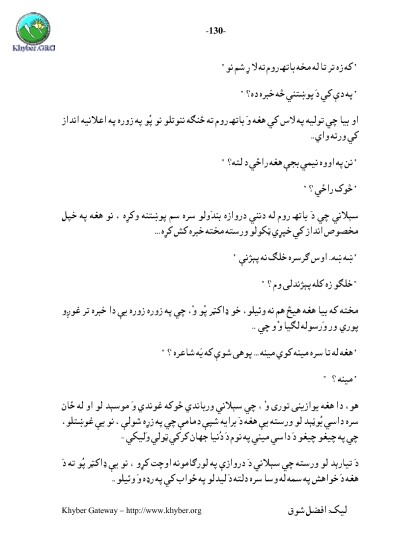 -130-
Khyber.ORG
" که زه تر تا له مخه باتهـ روم ته لاړ شم نو "
" په دې کې دَ پوښتنې څه خبره ده؟ "
او بيا چې توليه په لاس کې هغه وَ باتهـ روم ته څنګه ننوتلو نو پُو په زوره په اعلانيه انداز
کې ورته واي..
" نن په اووه نيمې بجې هغه راځي دلته؟ "
" څوک راځي؟ "
سپلانې چې دَ باتهـ روم له دننې دروازه بندَولو سره سم پوښتنه وکړه ، نو هغه په خپل
مخصوص انداز کې خپرې ټکولو ورسته مخته خبره کش کړه...
" ښه ښه. اوس ګرسره خلګ نه پېژنې "
" خلګو زه کله پېژندلی وم؟ "
مخته که بيا هغه هيڅ هم نه وئيلو، خو ډاکټر پُو وُ، چې په زوره زوره يې دا خبره تر غوږو
پورې ور وَرسوله لګيا وُ و چې ..
" هغه له تا سره مينه کوي مينه... پوهی شوې که يَه شاعره؟ "
" مينه؟ "
هو ، دا هغه يوازينی توری وُ ، چې سپلانې ورباندې څوکه غوندې وَ موسېد لو او له ځان
سره داسې بُوټېد لو ورسته يې هغه دَ برايه شپې دمامې چې په زړه شولې ، نو يې غوښتلو،
چې په چيغو چيغو دَ داسې مينې په نوم دَ دُنيا جهان کرکې ټولې وليکي ..
دَ تيارېد لو ورسته چې سپلانې دَ دروازې په لور ګامونه اوچت کړو ، نو يې ډاکټر پُو ته دَ
هغه دَ خواهش په سمه له وسا سره دلته دَ لېد لو په ځواب کې په رډه وَ وئيلو ..
Khyber Gateway – http://www.khyber.org
ليک: افضل شوق